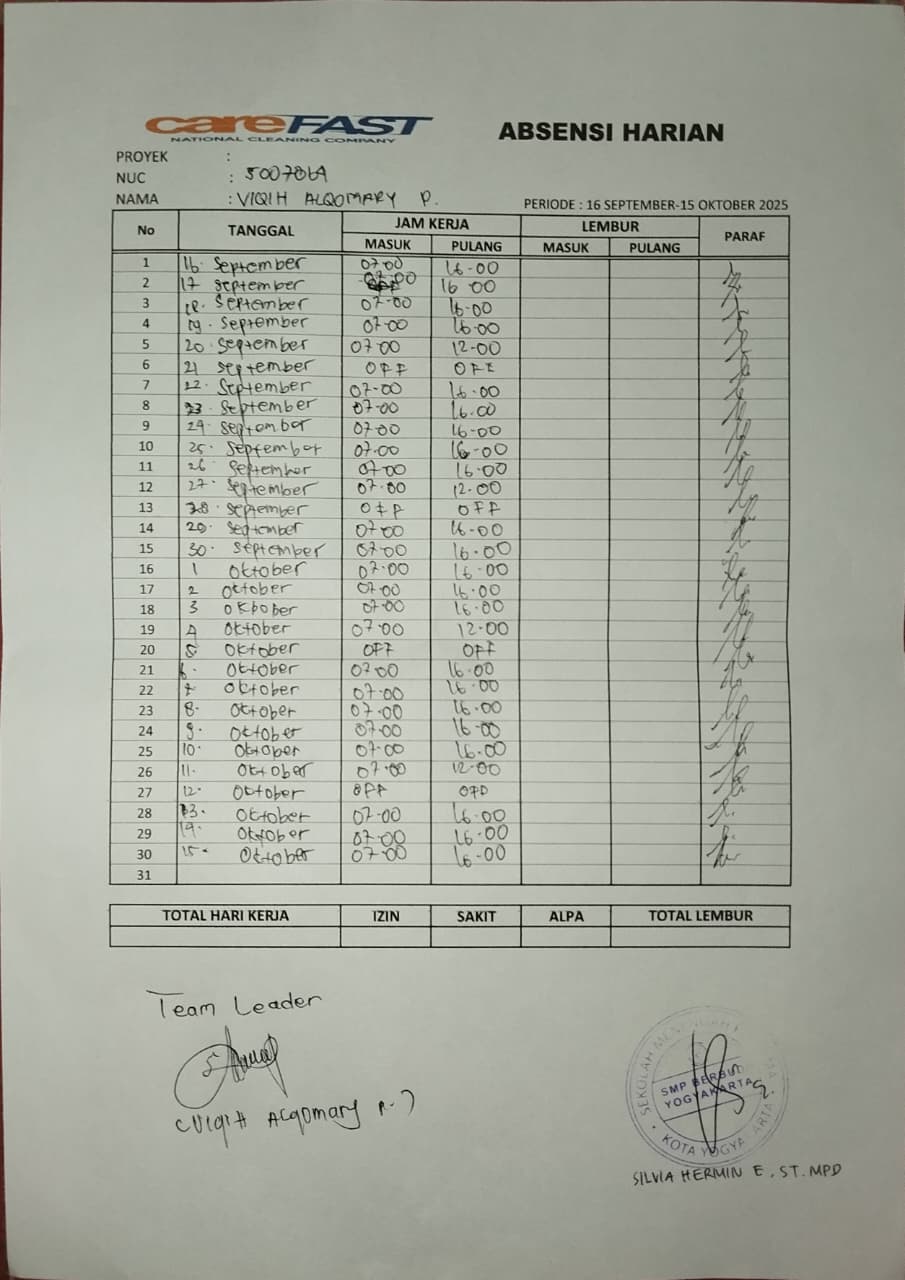 careFAST
NATIONAL CLEANING COMPANY
ABSENSI HARIAN
PROYEK :
NUC :
NAMA : VIQIH ALQOMARY P.
PERIODE : 16 SEPTEMBER-15 OKTOBER 2025
No TANGGAL JAM KERJA LEMBUR PARAF
MASUK PULANG MASUK PULANG
1 16. September 07.00 16-00
2 17 September 07.00 16 00
3 18. September 07-00 16-00
4 19. September 07-00 16-00
5 20. September 07.00 12-00
6 21 September OFF OFF
7 22. September 07-00 16.00
8 23. September 07-00 16.00
9 24. September 07.00 16-00
10 25. September 07.00 16-00
11 26 September 07-00 16-00
12 27. September 07.00 12.00
13 28. September OFF OFF
14 September 07.00 16-00
15 30. September 07.00 16.00
16 1 Oktober 07.00 16-00
17 2 Oktober 07.00 16.00
18 3 Okbober 07.00 16.00
19 4 Oktober 07.00 12-00
20 5 Oktober OFF OFF
21 6. Oktober 07.00 16.00
22 7 Oktober 07.00 16.00
23 8. Oktober 07.00 16.00
24 9. Oktober 07.00 16.00
25 10. Oktober 07-00 16.00
26 11. Oktober 07.00 12-00
27 12. Oktober OFF OFD
28 13. Oktober 07-00 16.00
29 14. Oktober 07.00 16.00
30 15. Oktober 07-00 16-00
31
TOTAL HARI KERJA IZIN SAKIT ALPA TOTAL LEMBUR
Team Leader
(VIQIH ALQOMARY P.)
SEKOLAH
SMP
YOGYAKARTA
KOTA
SILVIA HERMIN E, ST. MPD